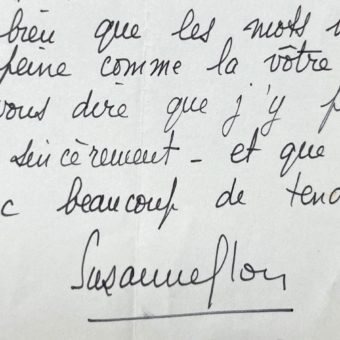 bien que les mots
peine comme la vôtre
vous dire que j'y p
sincèrement - et que
c beaucoup de tend
Suzanne Flon